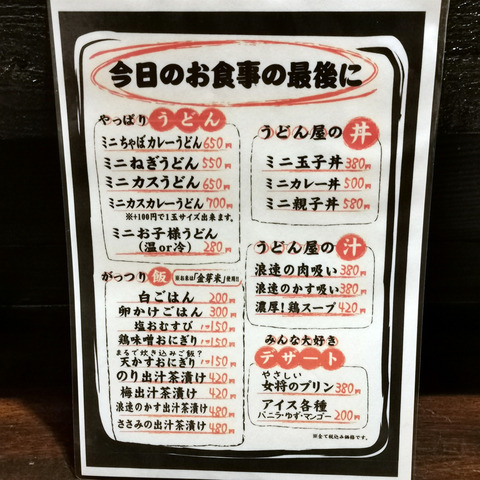 今日のお食事の最後に
やっぱりうどん
ミニちゃぽカレーうどん 650円
ミニねぎうどん 550円
ミニカスうどん 650円
ミニカスカレーうどん 700円
※+100円で1玉サイズ出来ます。
ミニお子様うどん
(温or冷) 280円
がっつり飯 当お米は「金芽米」使用!!
白ごはん 200円
卵かけごはん 300円
塩おむすび 1ヶ150円
鶏味噌おにぎり 1ヶ150円
まるで炊き込みご飯?
天かすおにぎり 1ヶ150円
のり出汁茶漬け 420円
梅出汁茶漬け 420円
浪速のかす出汁茶漬け 480円
ささみの出汁茶漬け 480円
うどん屋の丼
ミニ玉子丼 380円
ミニカレー丼 500円
ミニ親子丼 580円
うどん屋の汁
浪速の肉吸い 380円
浪速のかす吸い 380円
濃厚!鶏スープ 420円
みんな大好き
デザート
やさしい
女将のプリン 380円
アイス各種
バニラ・ゆず・マンゴー 200円
※全て税込み価格です。